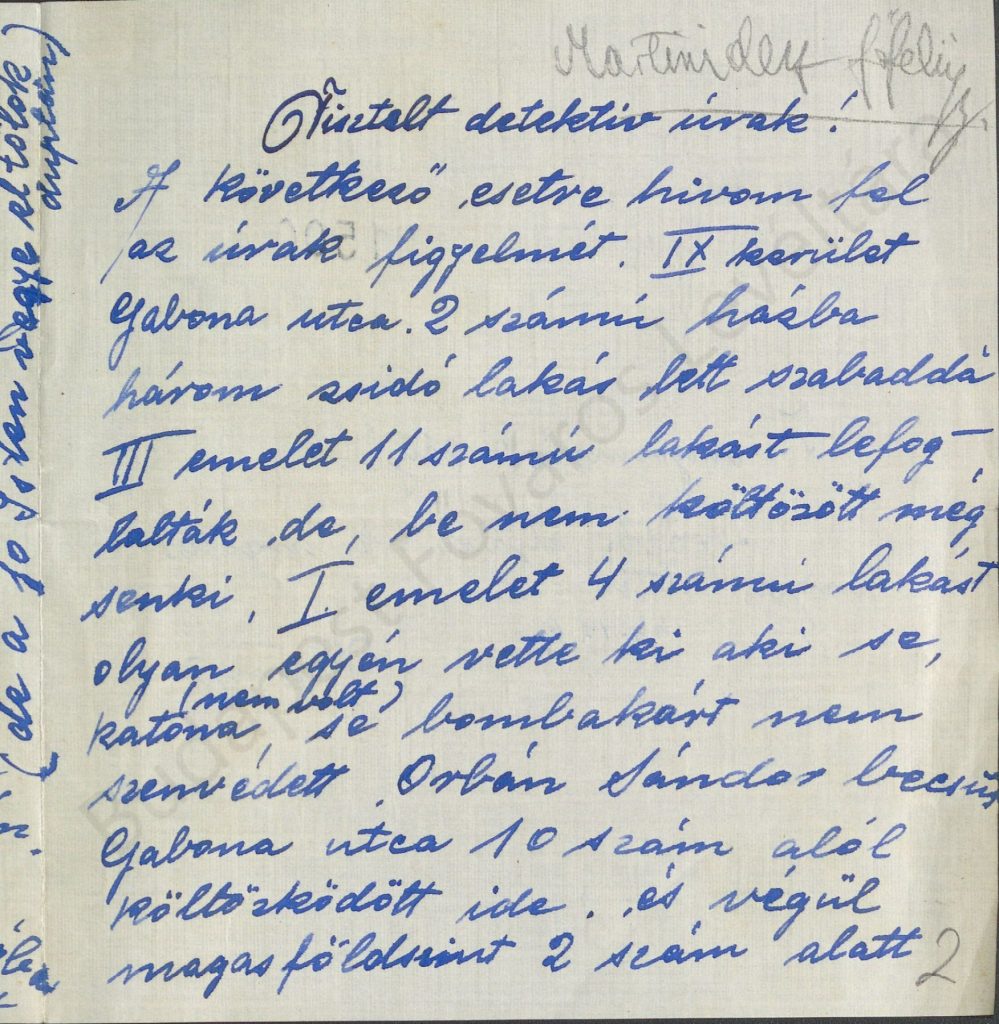 Tisztelt detektiv úrak!
A következő esetre hivom fel
az úrak figyelmét. IX kerület
Gabona utca. 2 számú házba
három zsidó lakás lett szabaddá
III emelet 11 számú lakást lefog
lalták de, be nem költözött még
senki, I. emelet 4 számú lakást
olyan egyén vette ki aki se,
(nem volt)
katona, se bombakárt nem
szenvédett, Orbán Sándor becsüs
Gabona utca 10 szám alól
költözködött ide. és végül
magasföldszint 2 szám alatt
2
(de a jo Isten vegye el tölök
duplán)
Budapest Főváros Levéltára